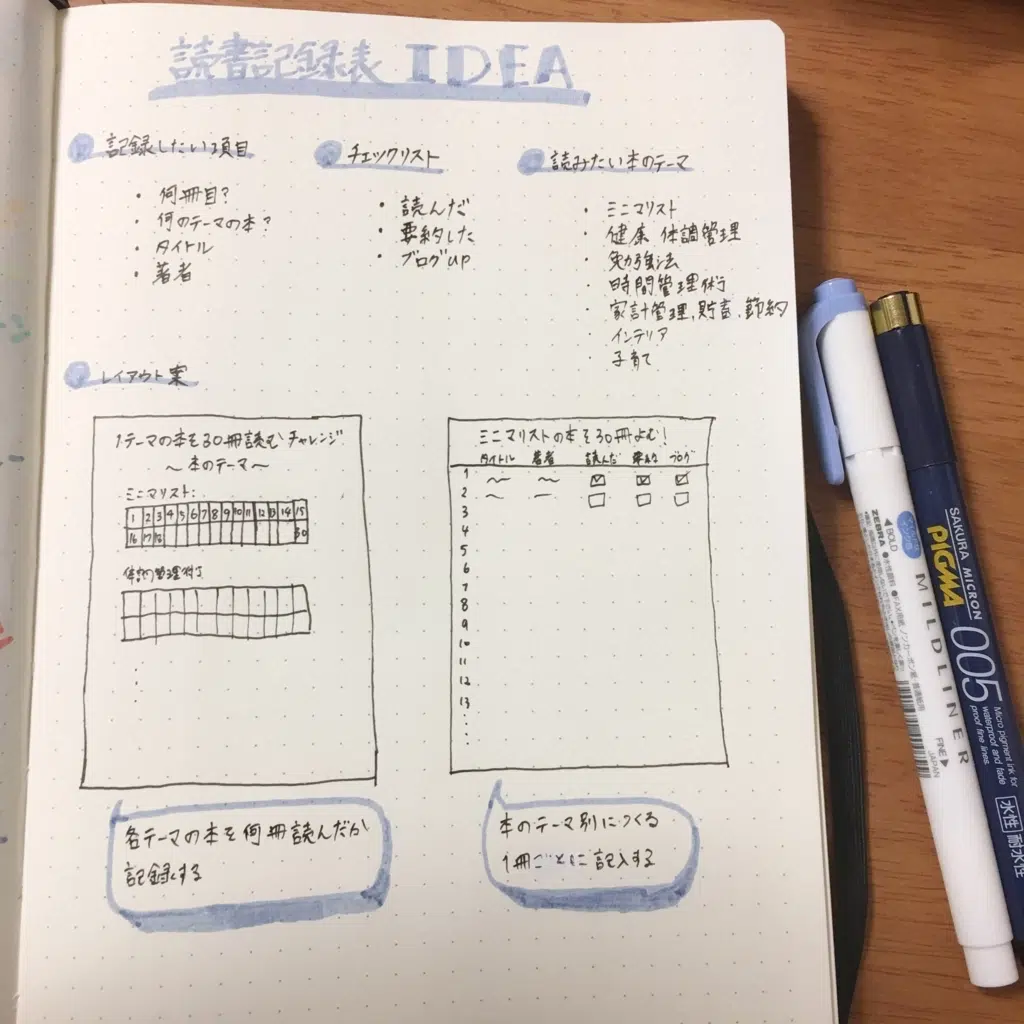 読書記録表 IDEA
記録したい項目
・何冊目?
・何のテーマの本?
・タイトル
・著者
チェックリスト
・読んだ
・要約した
・ブログup
読みたい本のテーマ
・ミニマリスト
・健康 体調管理
・勉強法
・時間管理術
・家計管理,貯蓄,節約
・インテリア
・子育て
レイアウト案
1テーマの本を30冊読むチャレンジ
〜本のテーマ〜
ミニマリスト:
1 2 3 4 5 6 7 8 9 10 11 12 13 14 15
16 17 18 30
管理術
ミニマリストの本を30冊よむ!
タイトル 著者 読んだ 要約 ブログ
1
2
3
4
5
6
7
8
9
10
11
12
13
各テーマの本を何冊読んだか
記録する
本のテーマ別につくる
1冊ごとに記入する
BOLD
ZEBRA
MILDLINER
FINE
JAPAN
SAKURA MICRON
PIGMA
005
Micro pigment ink for
waterproof and fade
proof fine lines
水性 耐水性